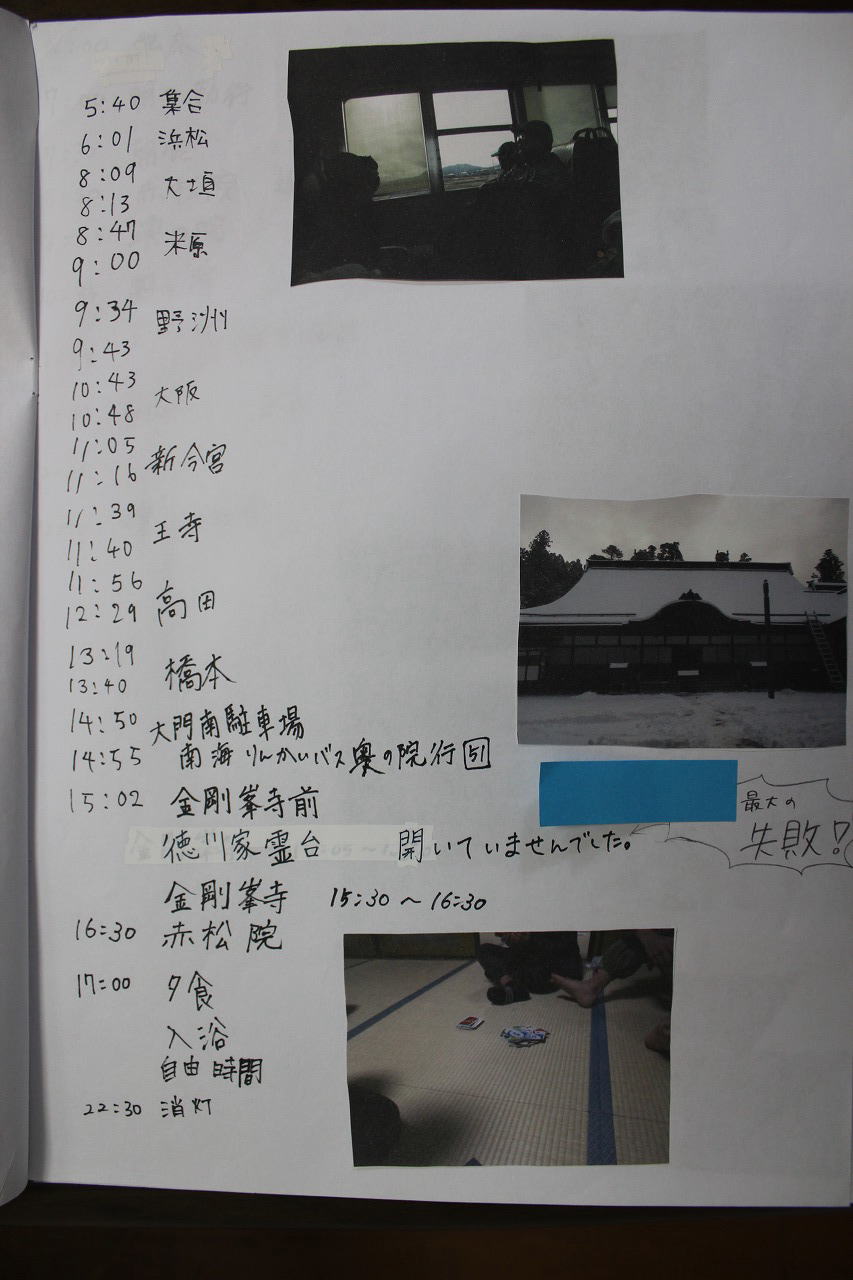 5:40 集合
6:01 浜松
8:09
8:13 大垣
8:47
9:00 米原
9:34 野洲
9:43
10:43
10:48 大阪
11:05
11:16 新今宮
11:39
11:40 王寺
11:56
12:29 高田
13:19
13:40 橋本
14:50 大門南駐車場
14:55 南海りんかいバス奥の院行 51
15:02 金剛峯寺前
最大の
失敗!
徳川家霊台 開いていませんでした。
金剛峯寺 15:30~16:30
16:30 赤松院
17:00 夕食
入浴
自由時間
22:30 消灯